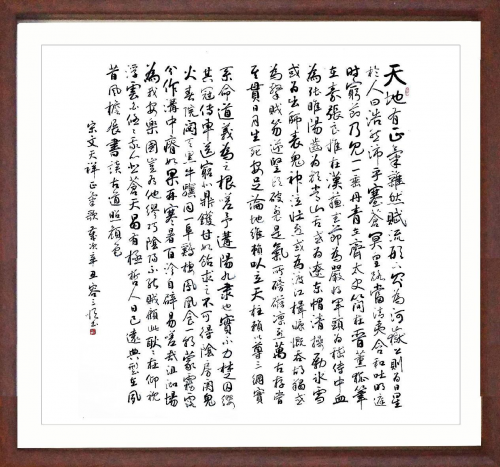 天地有正氣雜然賦流形下則為河嶽上則為日星
於人曰浩然沛乎塞蒼冥皇路當清夷含和吐明庭
時窮節乃見一一垂丹青在齊太史簡在晉董狐筆
在秦張良椎在漢蘇武節為嚴將軍頭為嵇侍中血
為張睢陽齒為顏常山舌或為遼東帽清操勵冰雪
或為出師表鬼神泣壯烈或為渡江楫慷慨吞胡羯或
為擊賊笏逆豎頭破裂是氣所磅礴凜烈萬古存當
其貫日月生死安足論地維賴以立天柱賴以尊三綱實
系命道義為之根嗟予遘陽九隸也實不力楚囚纓
其冠傳車送窮北鼎鑊甘如飴求之不可得陰房闃鬼
火春院閟天黑牛驥同一皁雞棲鳳凰食一朝蒙霧露
分作溝中瘠如果再寒暑百沴自辟易嗟哉沮洳場
為我安樂國豈有他繆巧陰陽不能賊顧此耿耿在仰視
浮雲白悠悠我心悲蒼天曷有極哲人日已遠典型在夙
昔風檐展書讀古道照顏色
宋文天祥正氣歌歲次辛丑容三書